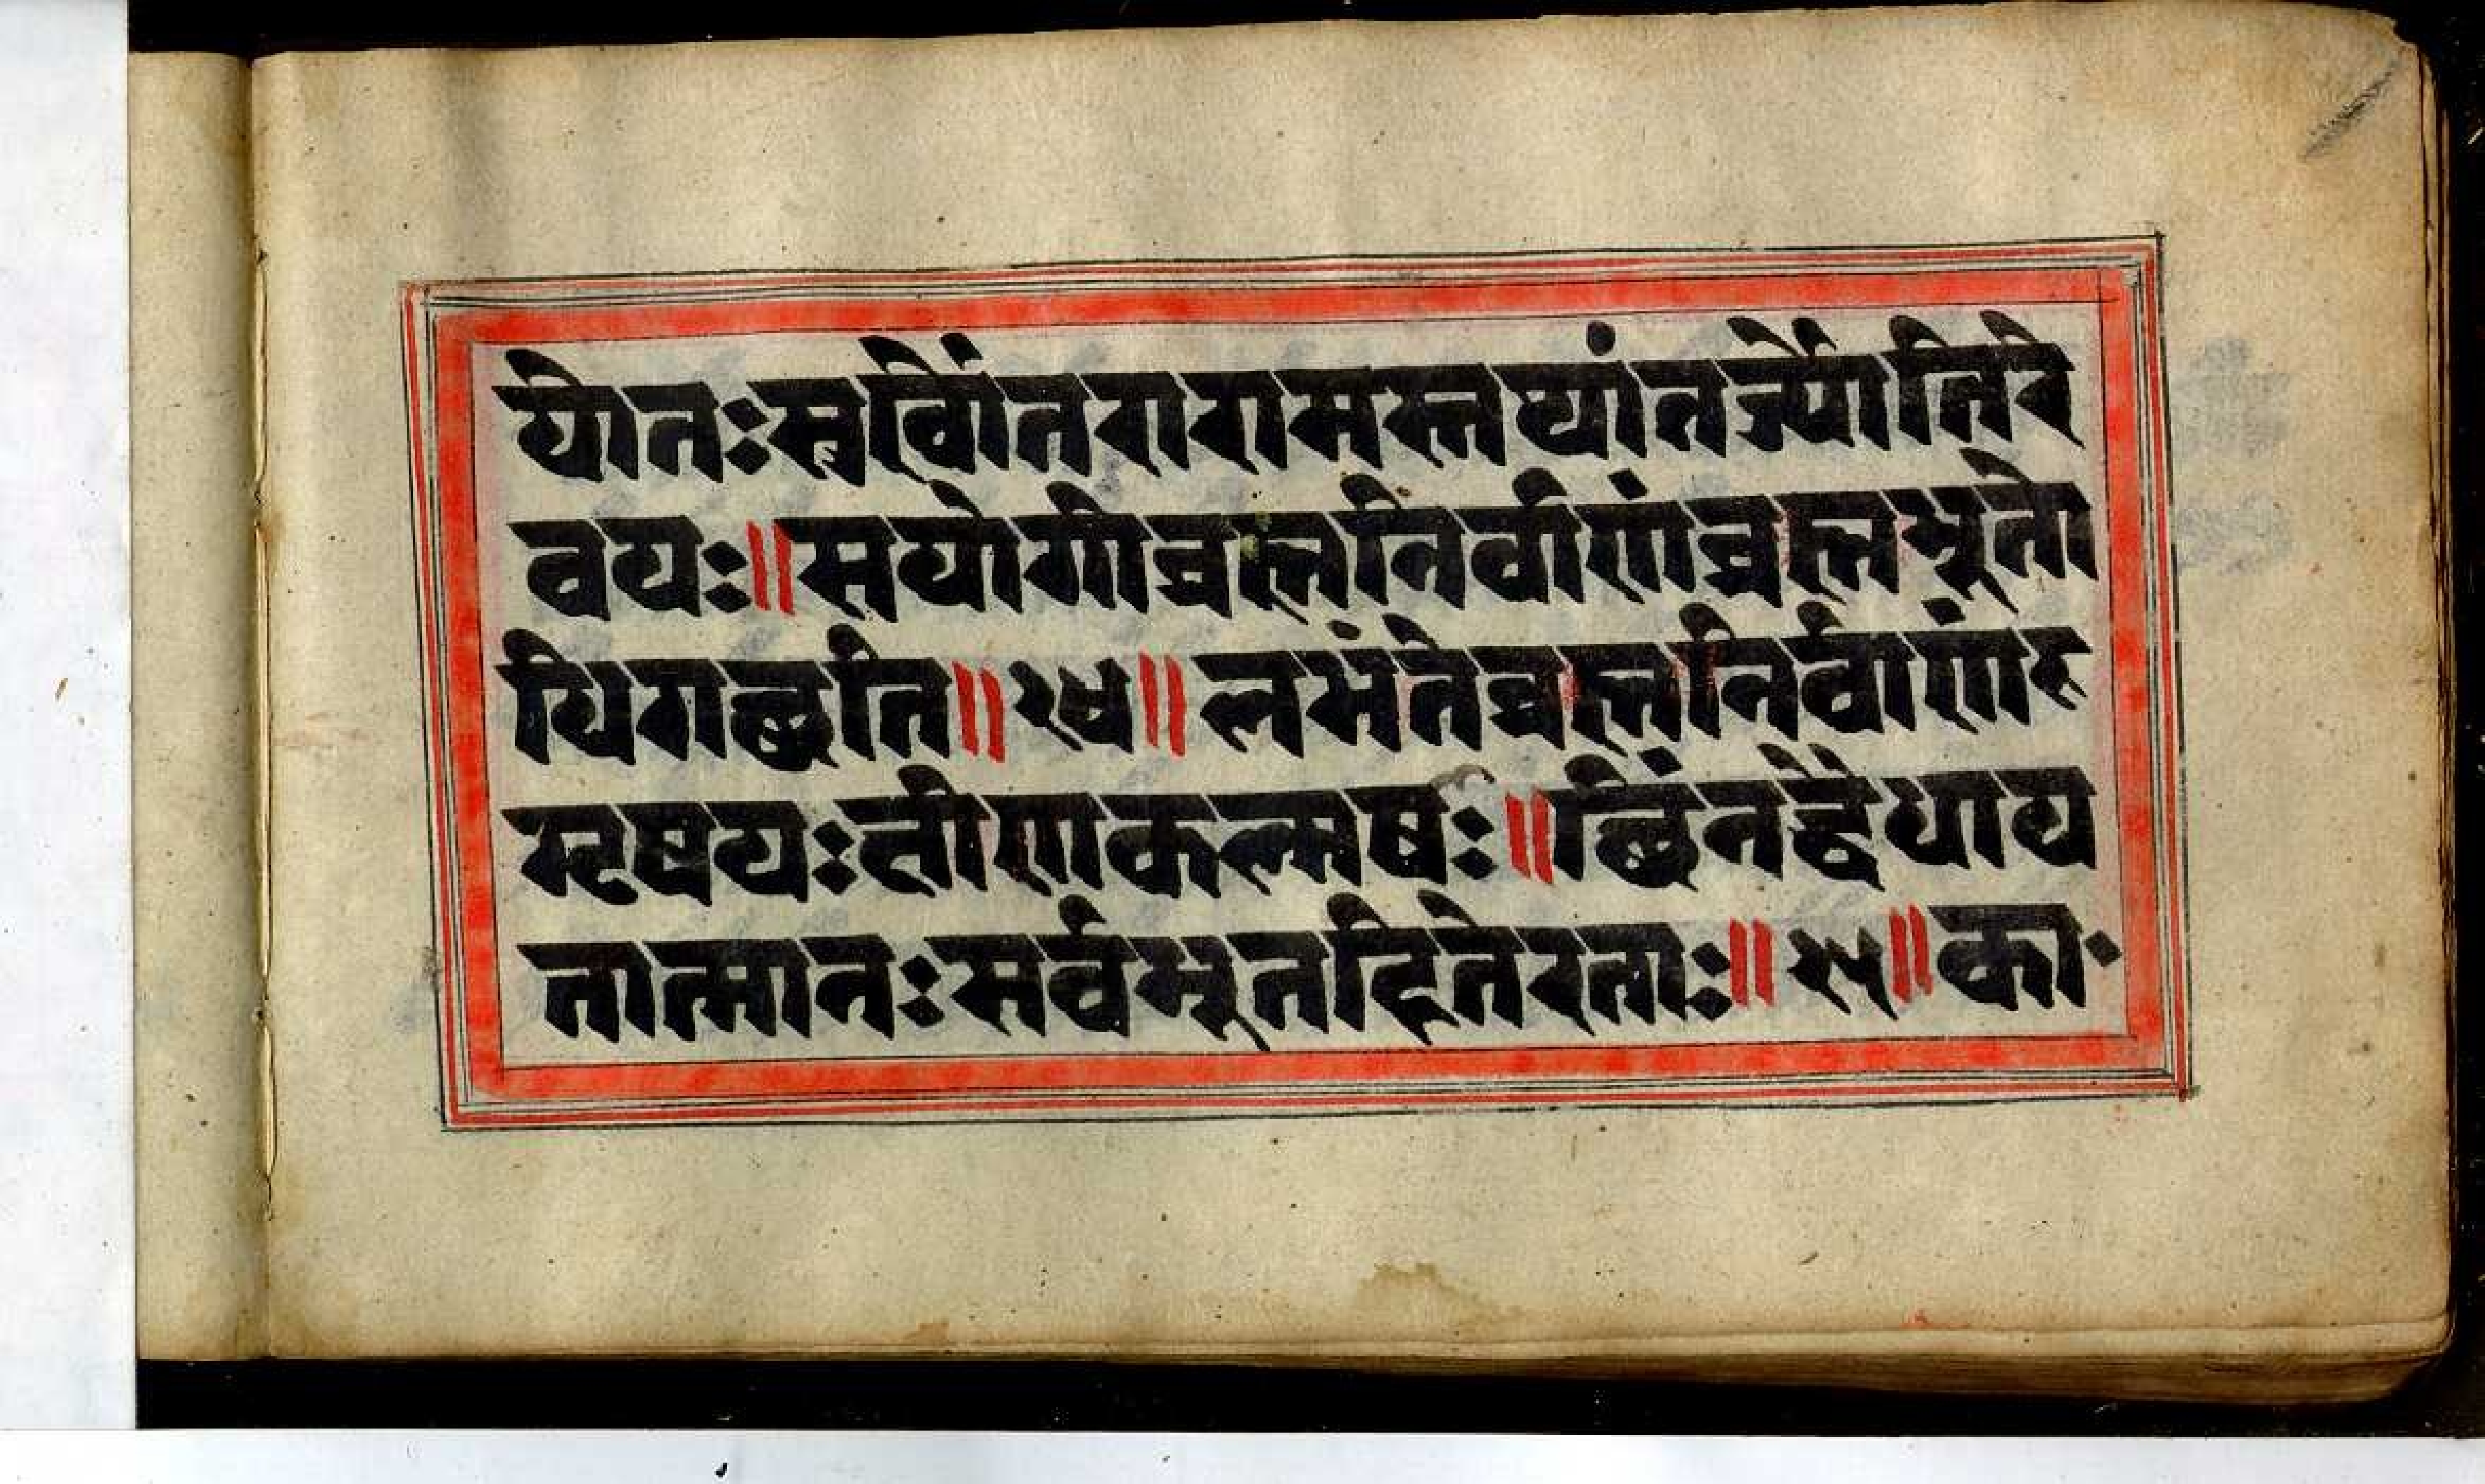 योंतःसुर्वोंतरारामस्तथांतर्ज्योतिरे
वयः॥सयोगीब्रह्मनिर्वाणंब्रह्मभूतो
धिगछति॥२४॥लभंतेब्रह्मनिर्वाणंरु
मृषयःक्षीणकल्मषः॥छिंनद्वैधाय
तात्मानःसर्वभूतहितेरताः॥२५॥का॰